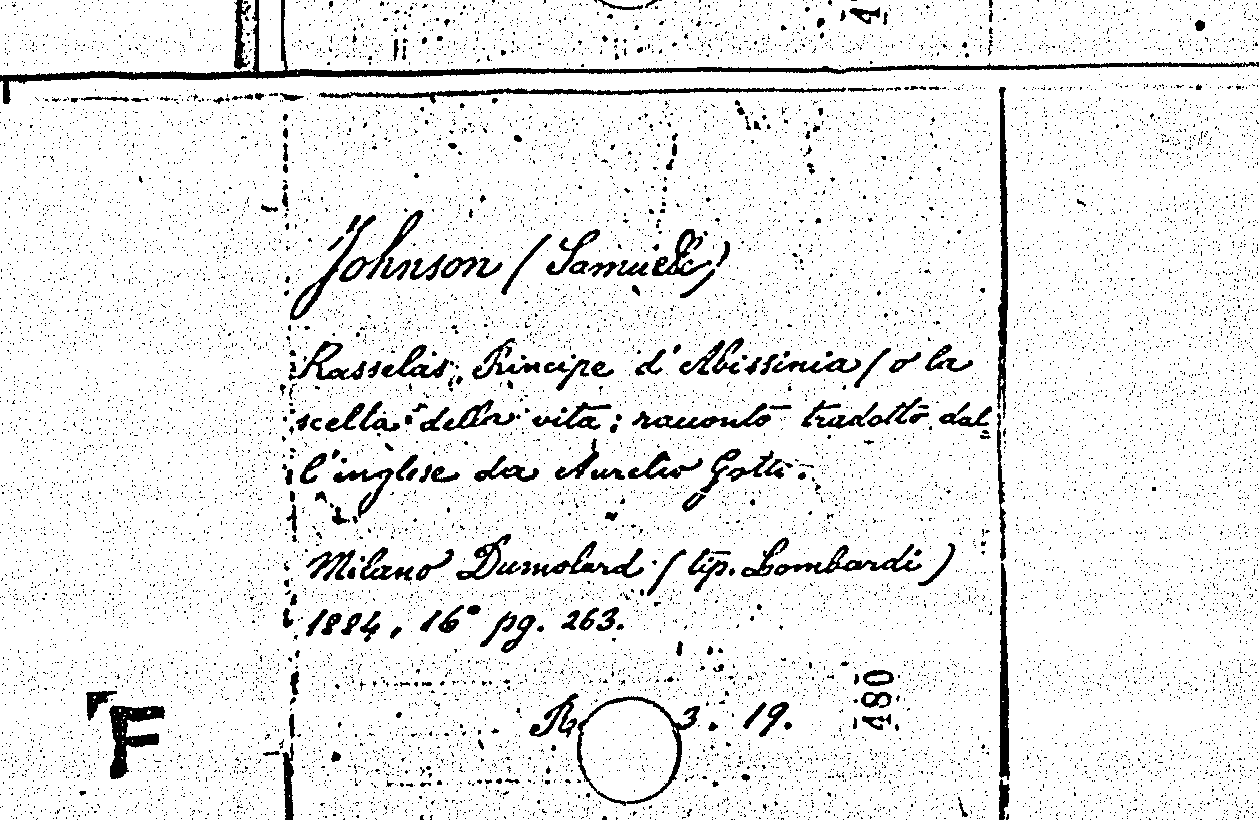 Johnson (Samuele)
Rasselas, Principe d'Abissinia / o la
scelta della vita: racconto tradotto dal
l'inglese da Aurelio Gotti.
Milano Dumolard (tip. Lombardi)
1884, 16° pg. 263.
3. 19.
480
F